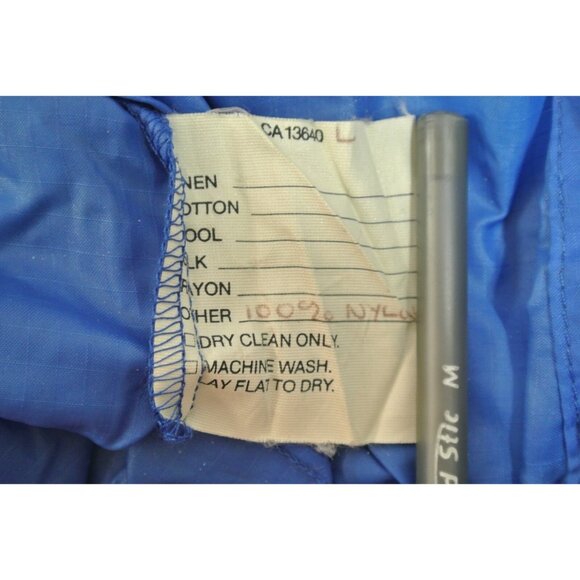 CA 13640 L
NEN
OTTON
OOL
LK
AYON
OTHER 100% NYLO
DRY CLEAN ONLY.
MACHINE WASH.
LAY FLAT TO DRY.
d Stic M